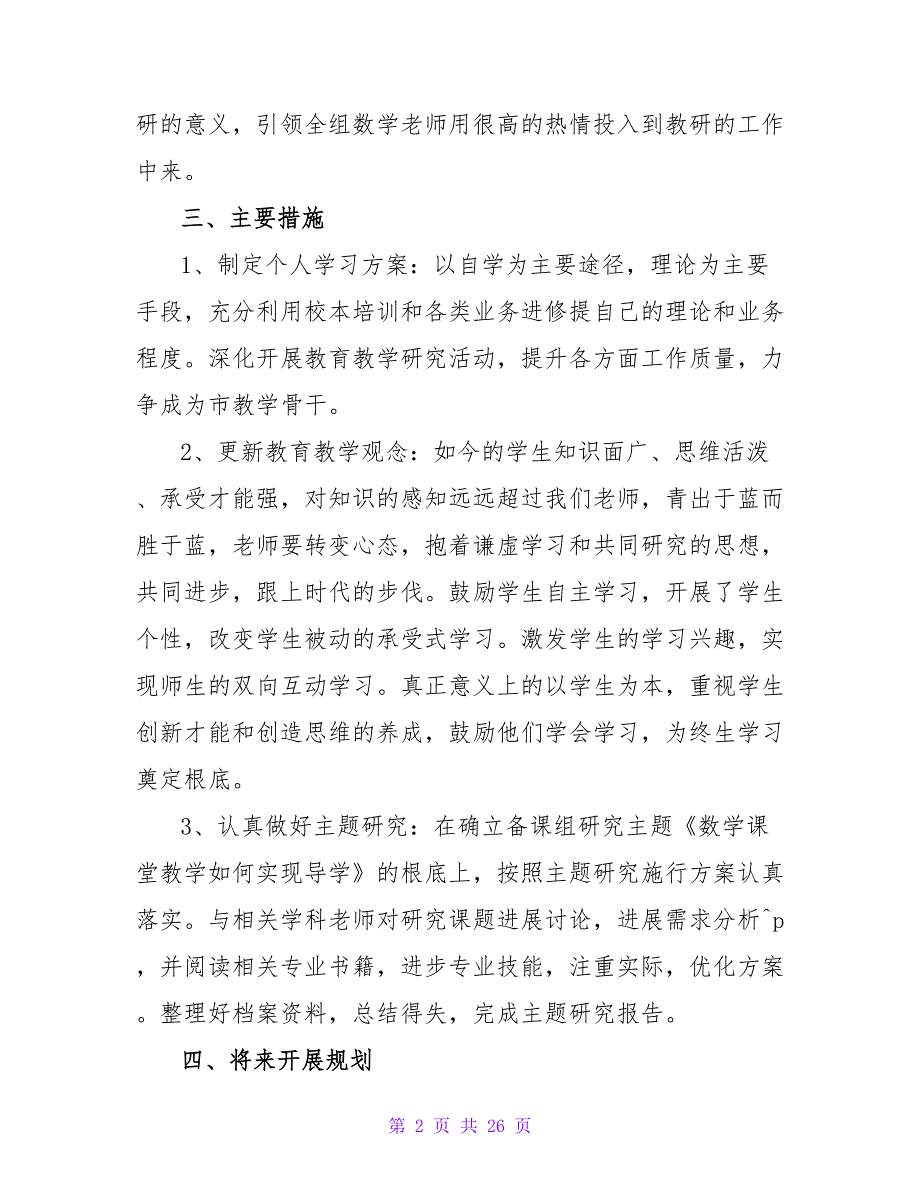 研的意义，引领全组数学老师用很高的热情投入到教研的工作
中来。
三、主要措施
1、制定个人学习方案：以自学为主要途径，理论为主要
手段，充分利用校本培训和各类业务进修提自己的理论和业务
程度。深化开展教育教学研究活动，提升各方面工作质量，力
争成为市教学骨干。
2、更新教育教学观念：如今的学生知识面广、思维活泼
、承受才能强，对知识的感知远远超过我们老师，青出于蓝而
胜于蓝，老师要转变心态，抱着谦虚学习和共同研究的思想，
共同进步，跟上时代的步伐。鼓励学生自主学习，开展了学生
个性，改变学生被动的承受式学习。激发学生的学习兴趣，实
现师生的双向互动学习。真正意义上的以学生为本，重视学生
创新才能和创造思维的养成，鼓励他们学会学习，为终生学习
奠定根底。
3、认真做好主题研究：在确立备课组研究主题《数学课
堂教学如何实现导学》的根底上，按照主题研究施行方案认真
落实。与相关学科老师对研究课题进展讨论，进展需求分析^p
，并阅读相关专业书籍，进步专业技能，注重实际，优化方案
。整理好档案资料，总结得失，完成主题研究报告。
四、将来开展规划
第 2 页 共 26 页